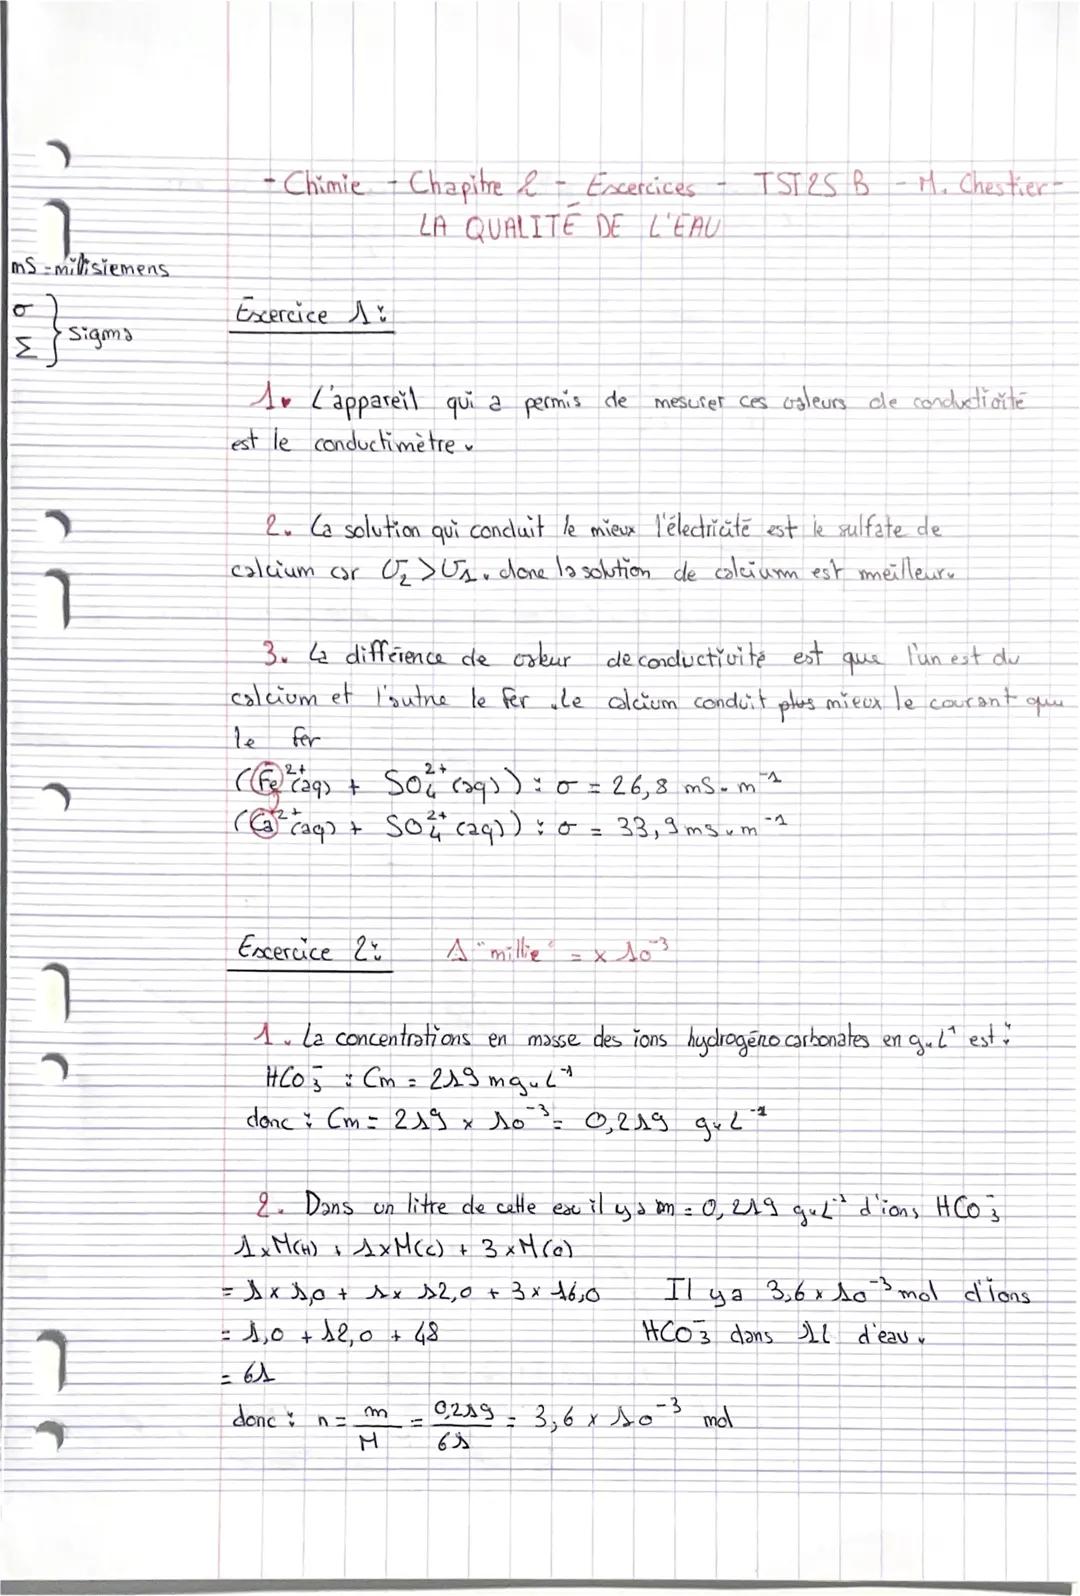 - Chimie - Chapitre 2 - Excercices - TST2S B - M. Chestier -
LA QUALITÉ DE L'EAU
mS = millisiemens
σ
Σ } Sigma
Excercice 1 :
1. L'appareil qui a permis de mesurer ces valeurs de conductivité
est le conductimètre.
2. La solution qui conduit le mieux l'électricité est le sulfate de
calcium car σ₂ > σ₁. donc la solution de calcium est meilleur.
3. La différence de valeur de conductivité est que l'un est du
calcium et l'autre le fer. Le calcium conduit plus mieux le courant que
le fer
(Fe²⁺(aq) + SO₄²⁺(aq)) : σ = 26,8 mS.m⁻¹
(Ca²⁺(aq) + SO₄²⁺(aq)) : σ = 33,9 mS.m⁻¹
Excercice 2 : ⚠ "millie" = × 10⁻³
1. La concentrations en masse des ions hydrogénocarbonates en g.L⁻¹ est :
HCO₃⁻ : Cm = 219 mg.L⁻¹
donc : Cm = 219 × 10⁻³ = 0,219 g.L⁻¹
2. Dans un litre de cette eau il y a m = 0,219 g.L⁻¹ d'ions HCO₃⁻
1×M(H) + 1×M(C) + 3×M(O)
= 1 × 1,0 + 1 × 12,0 + 3 × 16,0
= 1,0 + 12,0 + 48
= 61
donc : n = m/M = 0,219/61 = 3,6 × 10⁻³ mol
Il y a 3,6 × 10⁻³ mol d'ions
HCO₃⁻ dans 1L d'eau.